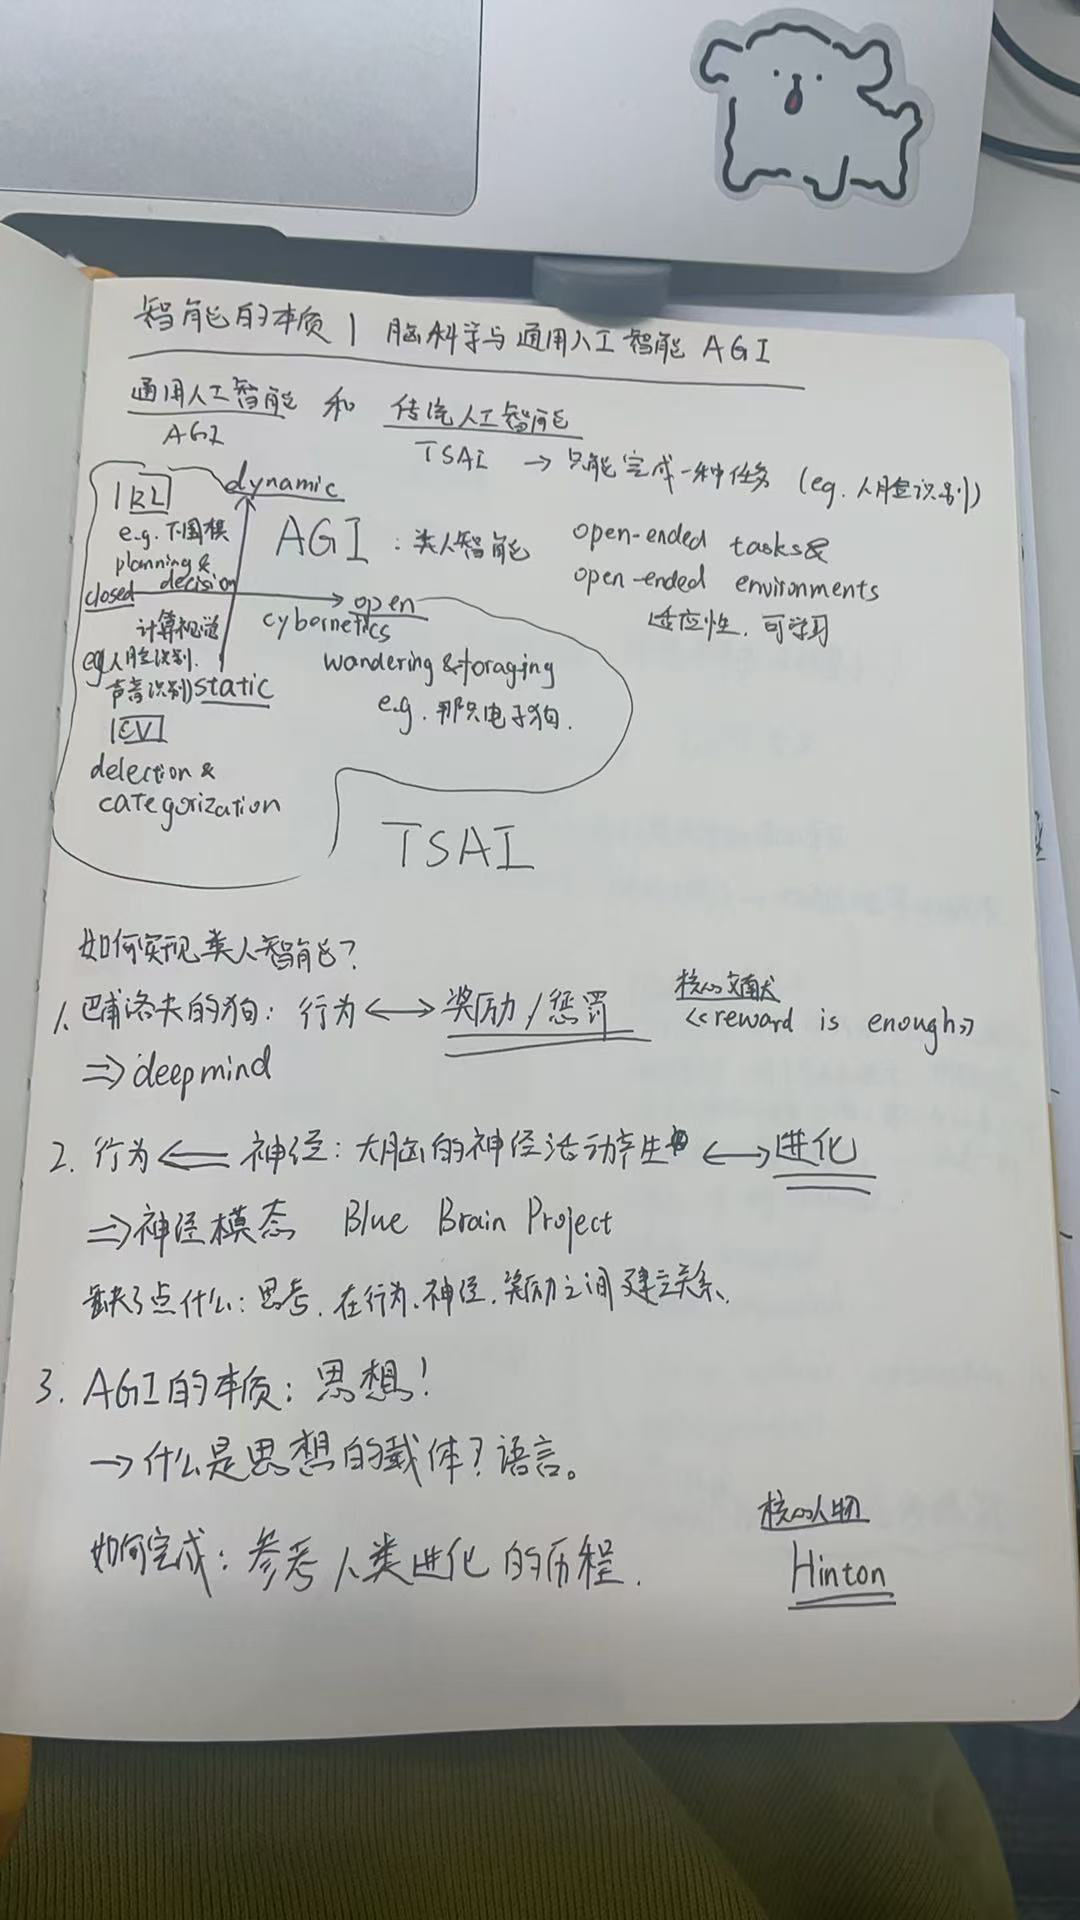 智能的本质 | 脑科学与通用人工智能 AGI
通用人工智能 和 传统人工智能
AGI
TSAI → 只能完成一种任务 (eg. 人脸识别)
dynamic
RL
e.g. 下围棋
planning &
decision
AGI : 类人智能
open-ended tasks&
open-ended environments
适应性. 可学习
closed
open
cybernetics
计算视觉
eg人脸识别.
声音识别)
static
CV
detection &
categorization
wandering & foraging
e.g. 那只电子狗.
TSAI
如何实现类人智能?
1. 巴甫洛夫的狗: 行为 ↔ 奖励/惩罚
核心文献
《reward is enough》
⇒ deepmind
2. 行为 ⇐ 神经: 大脑的神经活动产生 ↔ 进化
⇒ 神经模态 Blue Brain Project
缺了点什么: 思考. 在行为、神经. 奖励之间建立关系.
3. AGI的本质: 思想!
→ 什么是思想的载体? 语言。
核心人物
如何完成: 参考人类进化的历程.
Hinton